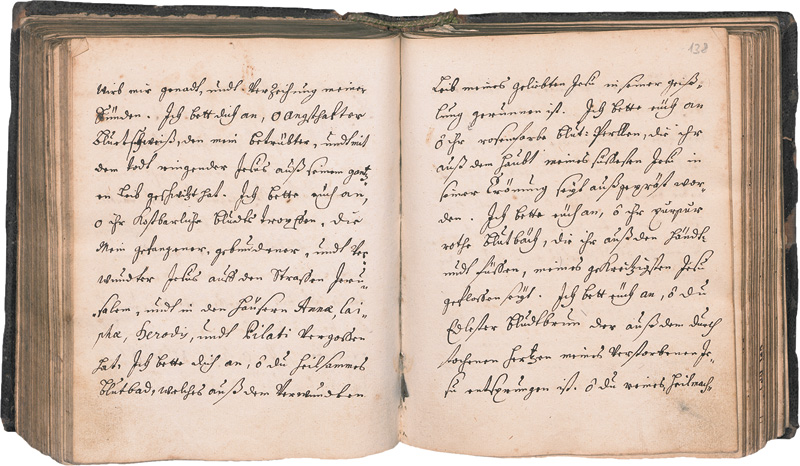 umb mir genadt, undt Verzeihung meiner
Sünden. Ich bett dich an, o angsthafter
blutschweiß, den mein betrübter, undt mit
dem todt ringender Jesus auß seinem gantz-
en Leib geschwitzt hat. Ich bette euch an,
o ihr Kostbarliche bluedts tropffen, die
Mein gefangener, gebundener, undt Ver-
wundter Jesus auff den Strassen Jeru-
salem, undt in den häusern Annæ, Cai-
phæ, Herodis, undt Pilati Vergossen
hat. Ich bette dich an, ô du heilsammes
blutbad, welches auß dem Verwundten
138
Leib meines geliebten Jesu in seiner geiß-
lung gerunnen ist. Ich bette euch an
ô ihr rosenfarbe blut-Perllen, die ihr
auß dem haubt meines süessesten Jesu in
seiner Crönnung seyt außgeprest wor-
den. Ich bette euch an, ô ihr purpur
rothe blutbäch, die ihr auß den händt-
undt füssen, meines gekreitzigten Jesu
geflossen seyt. Ich bett euch an, ô du
Edlester bludtbrun der auß dem durch
stochenen hertzen meines Verstorbenen Je-
su entsprungen ist. ô du reines, heilmach-